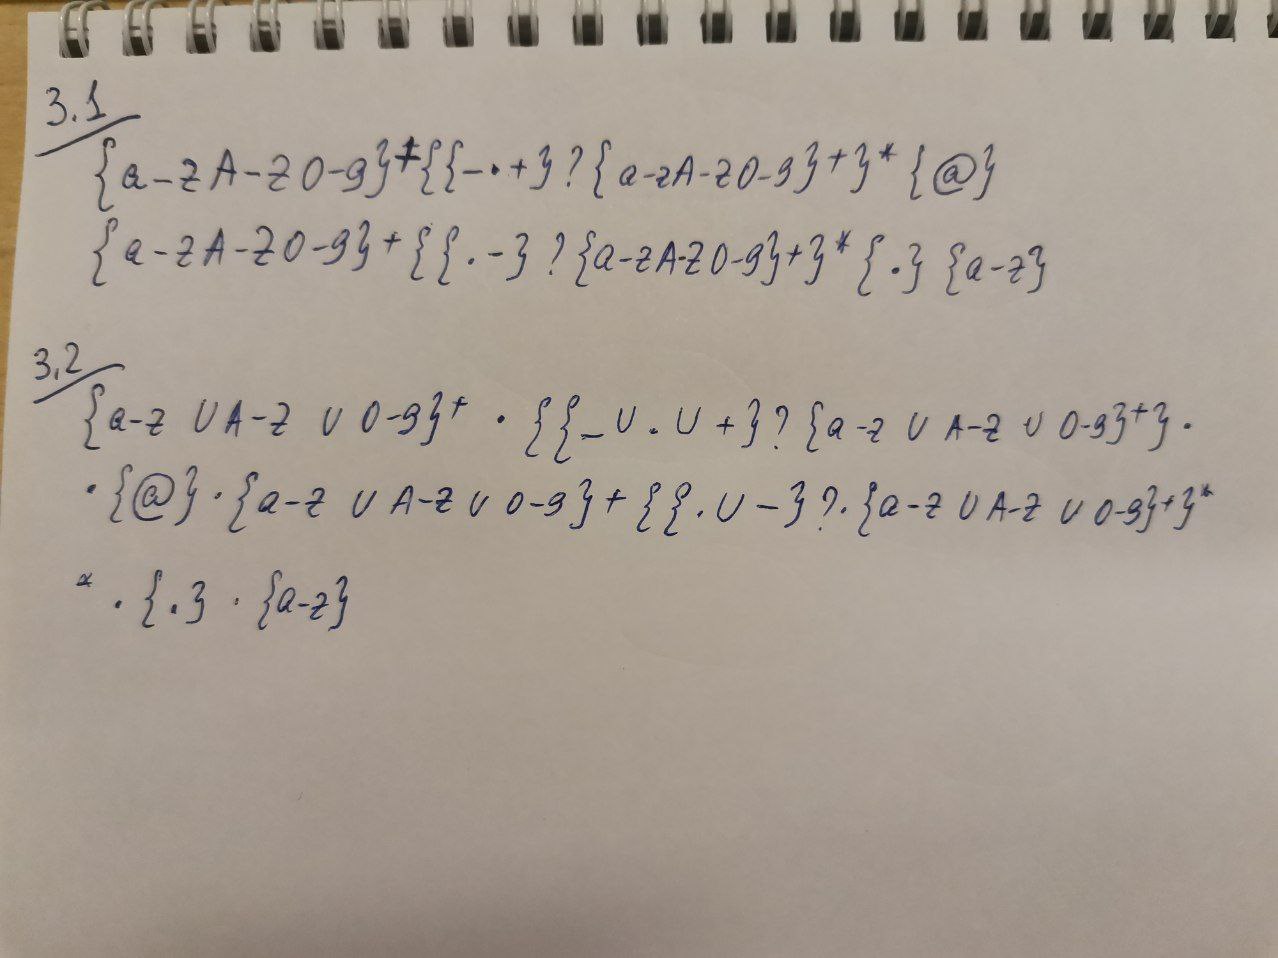 3.1
{a-zA-Z0-9}+{{-.+}?{a-zA-Z0-9}+}*{@}
{a-zA-Z0-9}+{{.-}?{a-zA-Z0-9}+}*{.}{a-z}
3.2
{a-z ∪ A-Z ∪ 0-9}+ · {{_ ∪ . ∪ +}?{a-z ∪ A-Z ∪ 0-9}+}·
·{@}·{a-z ∪ A-Z ∪ 0-9}+{{. ∪ -}?·{a-z ∪ A-Z ∪ 0-9}+}*
* · {.} · {a-z}